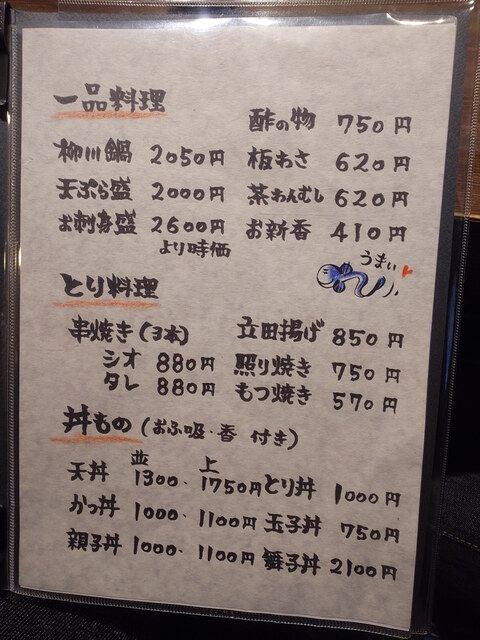 一品料理
柳川鍋 2050円
天ぷら盛 2000円
お刺身盛 2600円
より時価
酢の物 750円
板わさ 620円
茶わんむし 620円
お新香 410円
うまい
とり料理
串焼き(3本)
シオ 880円
タレ 880円
立田揚げ 850円
照り焼き 750円
もつ焼き 570円
丼もの(おふ吸・香 付き)
並 上
天丼 1300、1750円 とり丼 1000円
かつ丼 1000、1100円 玉子丼 750円
親子丼 1000、1100円 舞子丼 2100円